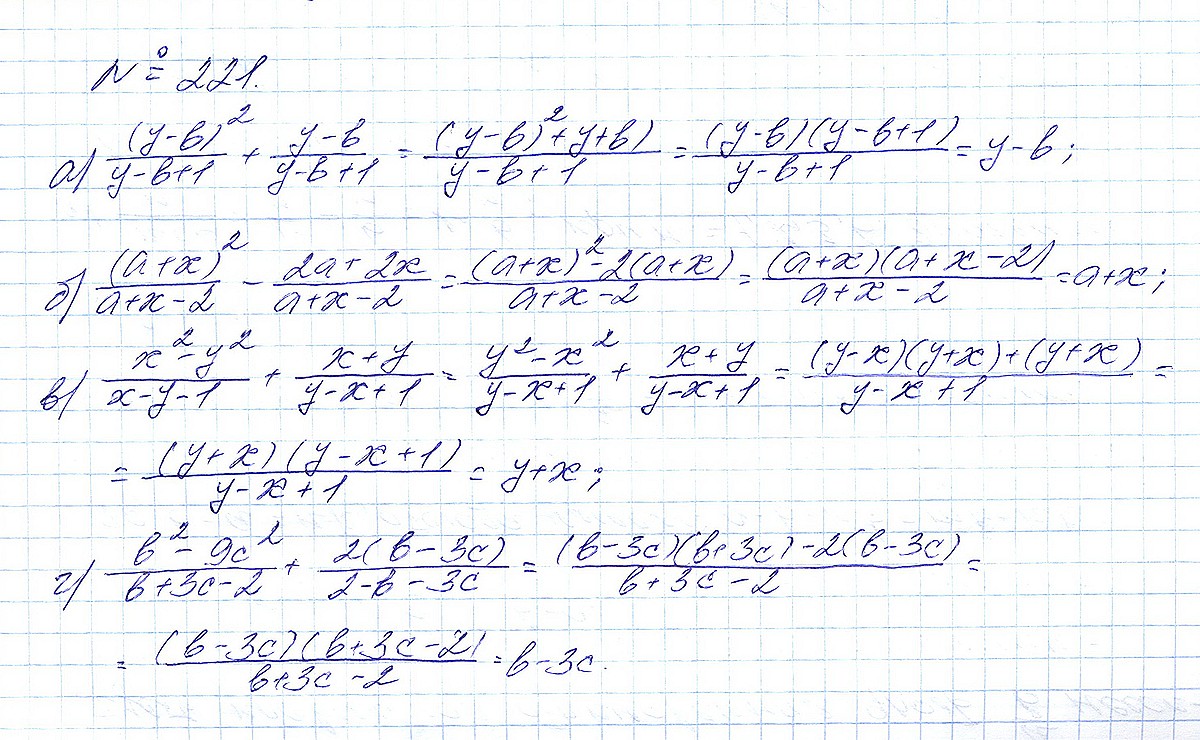 № 221.
а) (y-b)²/(y-b+1) + (y-b)/(y-b+1) = ((y-b)²+y+b)/(y-b+1) = (y-b)(y-b+1)/(y-b+1) = y-b;
б) (a+x)²/(a+x-2) - (2a+2x)/(a+x-2) = ((a+x)²-2(a+x))/(a+x-2) = (a+x)(a+x-2)/(a+x-2) = a+x;
в) (x²-y²)/(x-y-1) + (x+y)/(y-x+1) = (y²-x²)/(y-x+1) + (x+y)/(y-x+1) = ((y-x)(y+x)+(y+x))/(y-x+1) =
= (y+x)(y-x+1)/(y-x+1) = y+x;
г) (b²-9c²)/(b+3c-2) + 2(b-3c)/(2-b-3c) = ((b-3c)(b+3c)-2(b-3c))/(b+3c-2) =
= (b-3c)(b+3c-2)/(b+3c-2) = b-3c.